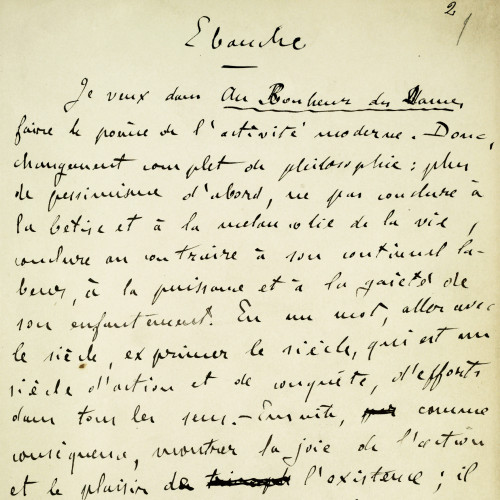 2
Ebauche
Je veux dans Au Bonheur des Dames,
faire le poème de l'activité moderne. Donc,
changement complet de philosophie : plus
de pessimisme d'abord, ne pas conclure à
la bêtise et à la mélancolie de la vie,
conclure au contraire à son continuel la-
beur, à la puissance et à la gaieté de
son enfantement. En un mot, aller avec
le siècle, exprimer le siècle, qui est un
siècle d'action et de conquête, d'efforts
dans tous les sens. - Ensuite, comme
conséquence, montrer la joie de l'action
et le plaisir de l'existence ; il